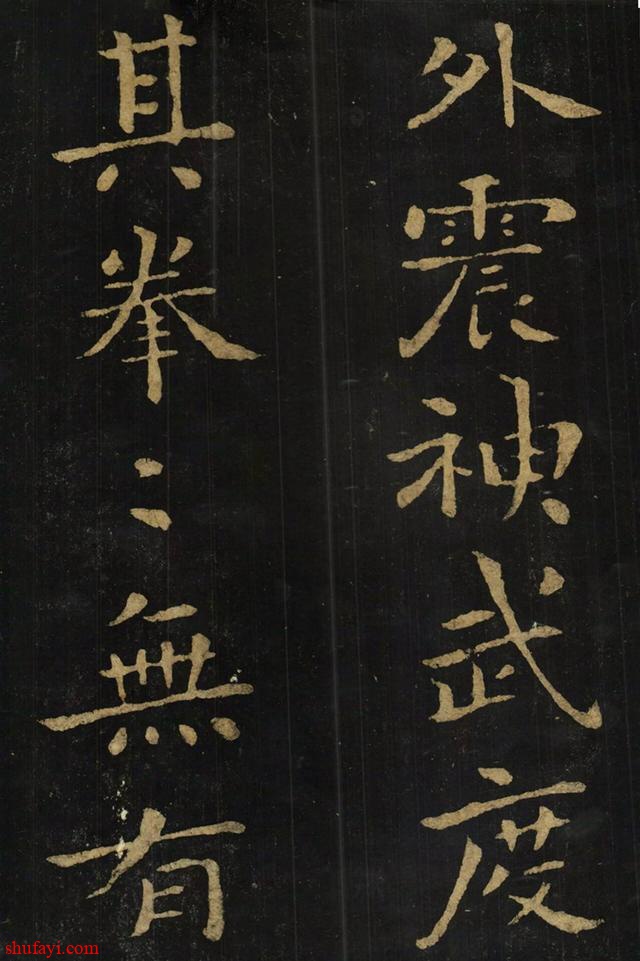 外震神武度
其拳〻無有
shufayi.com